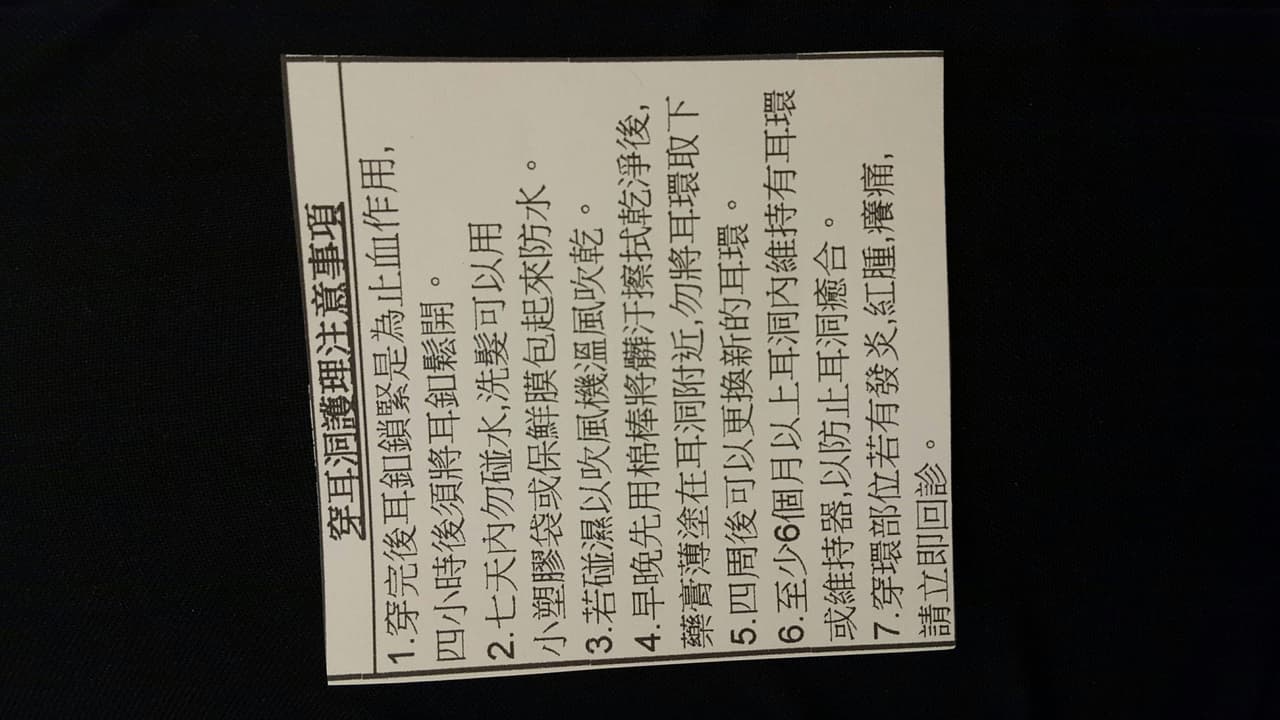 穿耳洞護理注意事項
1.穿完後耳釦鎖緊是為止血作用,
四小時後須將耳釦鬆開。
2.七天內勿碰水,洗髮可以用
小塑膠袋或保鮮膜包起來防水。
3.若碰濕以吹風機溫風吹乾。
4.早晚先用棉棒將髒汙擦拭乾淨後,
藥膏薄塗在耳洞附近,勿將耳環取下
5.四周後可以更換新的耳環。
6.至少6個月以上耳洞內維持有耳環
或維持器,以防止耳洞癒合。
7.穿環部位若有發炎,紅腫,癢痛,
請立即回診。